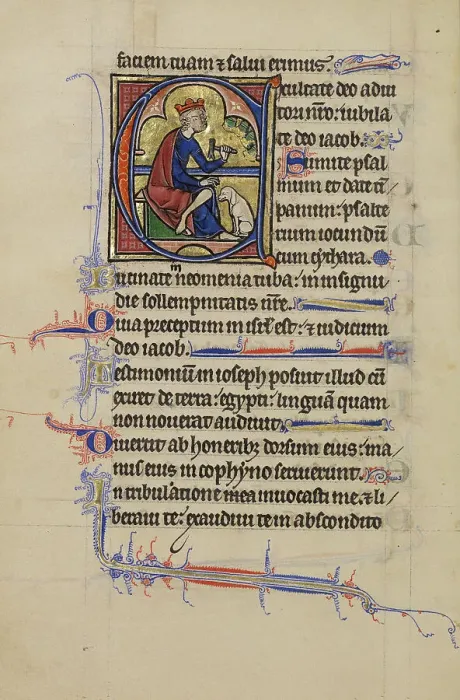 faciem tuam ⁊ salui erimus.
Exultate deo adiu
tori nr̄o: iubila
te deo iacob.
Sumite psal
mum et date tȳ /
panum: psalte
rium iocundū
cum cythara.
Bucinate in neomenia tuba: in insigni
die sollempnitatis ur̄e.
Quia preceptum in isrl̄ est: ⁊ iudicium
deo iacob.
Testimoniū in ioseph posuit illud cū
exiret de terra egypti: linguā quam
non nouerat audiuit.
Diuertit ab honeribꝫ dorsum eius: ma /
nus eius in cophyno seruierunt.
In tribulatione mea inuocasti me ⁊ li /
beraui te: exaudiui te in abscondito